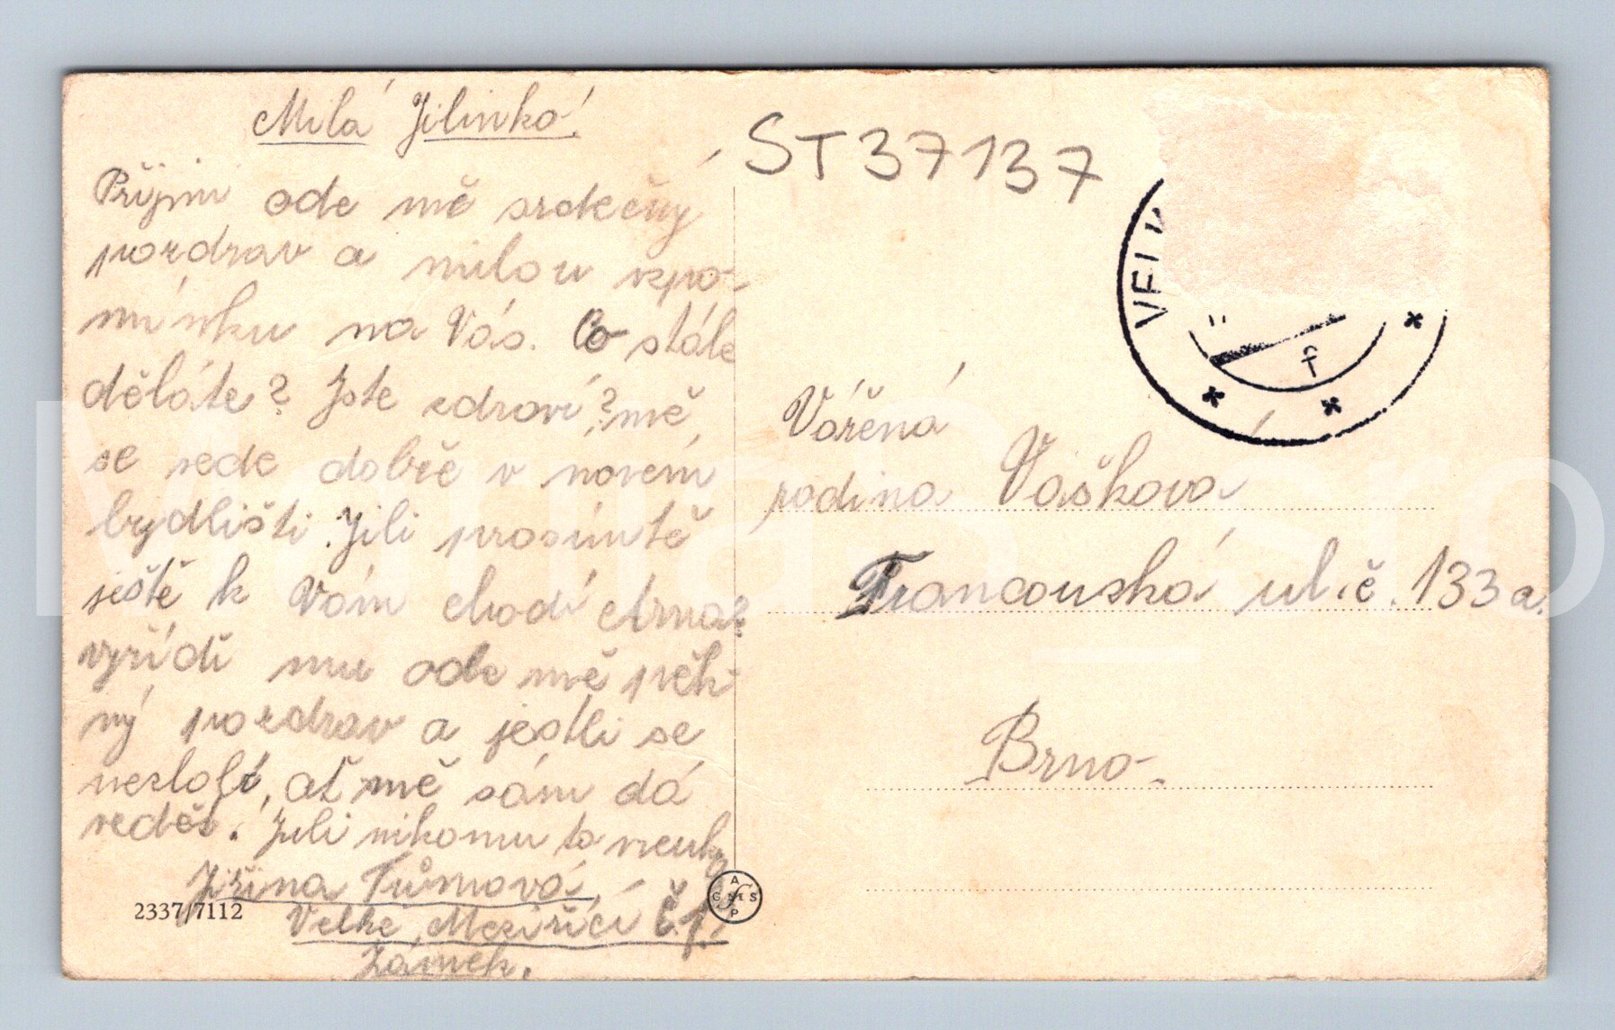 Milá Jilinko!
Přijmi ode mě srdečný
pozdrav a milou vzpo-
mínku na Vás. Co stále
děláte? Jste zdraví? mě
se vede dobře v novém
bydlišti. Jili prosímtě
ještě k Vám chodí
vyřídi mu ode mě pěk-
ný pozdrav a jestli se
nezlobí, ať mě sám dá
vedět. Jili nikomu to neuk
Jiřina Tůmová,
Velké Meziříčí č.1,
Zámek.
2337/7112
ST37137
VELK
Vážená
rodina Vaškova
Francouzská ulič. 133a.
Brno.